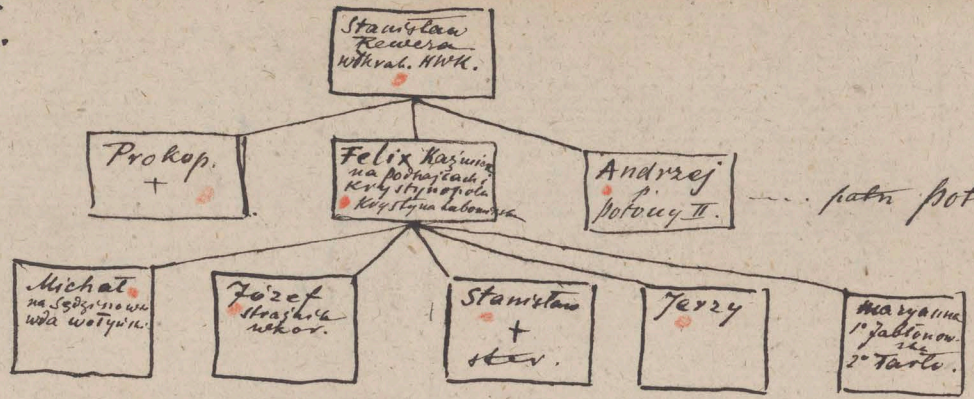 Stanisław
Rewera
wdkrak. HWK.
Prokop.
+
Felix Kazimierz
na Podhajcach i
Krystynopolu
Krystyna Lubomirska
Andrzej
Potoccy II.
.... patrz Pot
Michał
na Sędziszowie
wda wołyńs.
Józef
strażnik
wkor.
Stanisław
+
ster.
Jerzy
Maryanna
1º Jabłonow-
ska
2º Tarło.